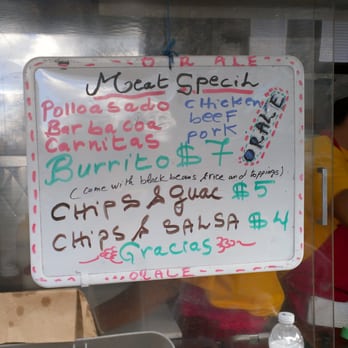 ORALE
Meat Specil
Polloasado chicken
Barbacoa beef
Carnitas pork
ORALE
Burrito $7
(come with black beans & rice and toppings)
CHIPS & guac $5
CHIPS & SALSA $4
Gracias
ORALE